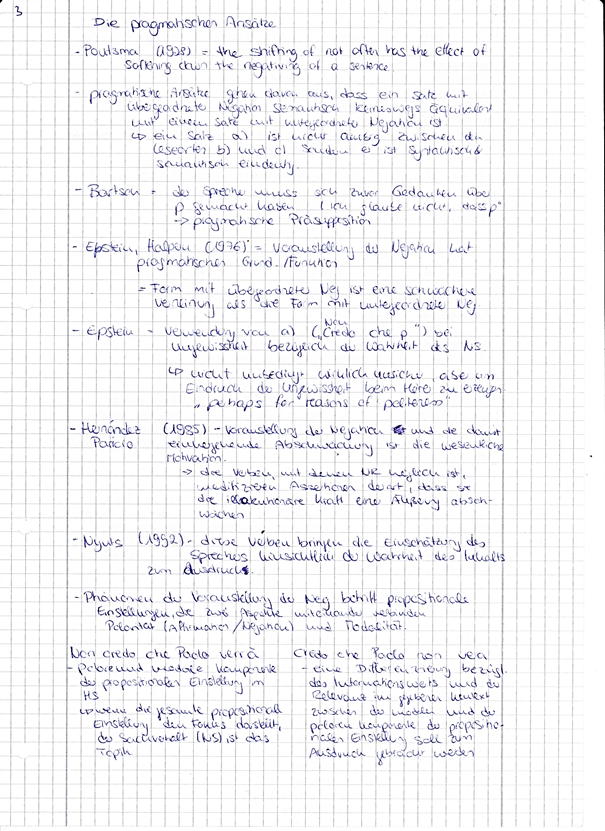 3
Die pragmatischen Ansätze
- Poutsma (1928) = the shifting of not often has the effect of
softening down the negativing of a sentence
- pragmatische Ansätze gehen davon aus, dass ein Satz mit
übergeordnete Negation semantisch keineswegs äquivalent
mit einem Satz mit untergeordnete Negation ist
↳ ein Satz a) ist nicht ambig zwischen den
Lesearten b) und c) sondern er ist syntaktisch &
semantisch eindeutig.
- Bartsch = der Sprecher muss sich zuvor Gedanken über
p gemacht haben (" ich glaube nicht, dass p"
→ pragmatische Präsupposition
- Epstein, Halpern (1976) = Voranstellung der Negation hat
pragmatischen Grund /Funktion
= Form mit übergeordnete Neg ist eine schwächere
Verneinung als die Form mit untergeordnete Neg
- Epstein - Verwendung von a) („Non Credo che p") bei
Ungewissheit bezüglich der Wahrheit des NS.
↳ nicht unbedingt wirklich unsicher, aber um
Eindruck der Ungewissheit beim Hörer zu erzeugen
„ perhaps for reasons of politeness"
- Hernández (1985) - Voranstellung der Negation und die damit
Paricio einhergehende Abschwächung ist die wesentliche
Motivation.
→ die Verben, mit denen NR möglich ist,
modifizieren Assertionen derart, dass sie
die illokutionäre Kraft eine Äußerung absch-
wächen
- Nuyts (1992) - diese Verben bringen die Einschätzung des
Sprechers hinsichtlich der Wahrheit des Inhalts
zum Ausdruck.
- Phänomen der Voranstellung der Neg betrifft propositionale
Einstellungen, die zwei Aspekte miteinander verbinden
Polarität (Affirmation/Negation) und Modalität.
Non credo che Paolo verrà
- Polare und modale Komponente
der propositionalen Einstellung im
HS
↳ wenn die gesamte propositionale
Einstellung den Fokus darstellt,
der Sachverhalt (NS) ist das
Topik
Credo che Paolo non verrà
- eine Differenzierung bezügl.
des Informationswerts und der
Relevanz im gegebenen Kontext
zwischen der modalen und der
polaren Komponente der propositio-
nalen Einstellung soll zum
Ausdruck gebracht werden